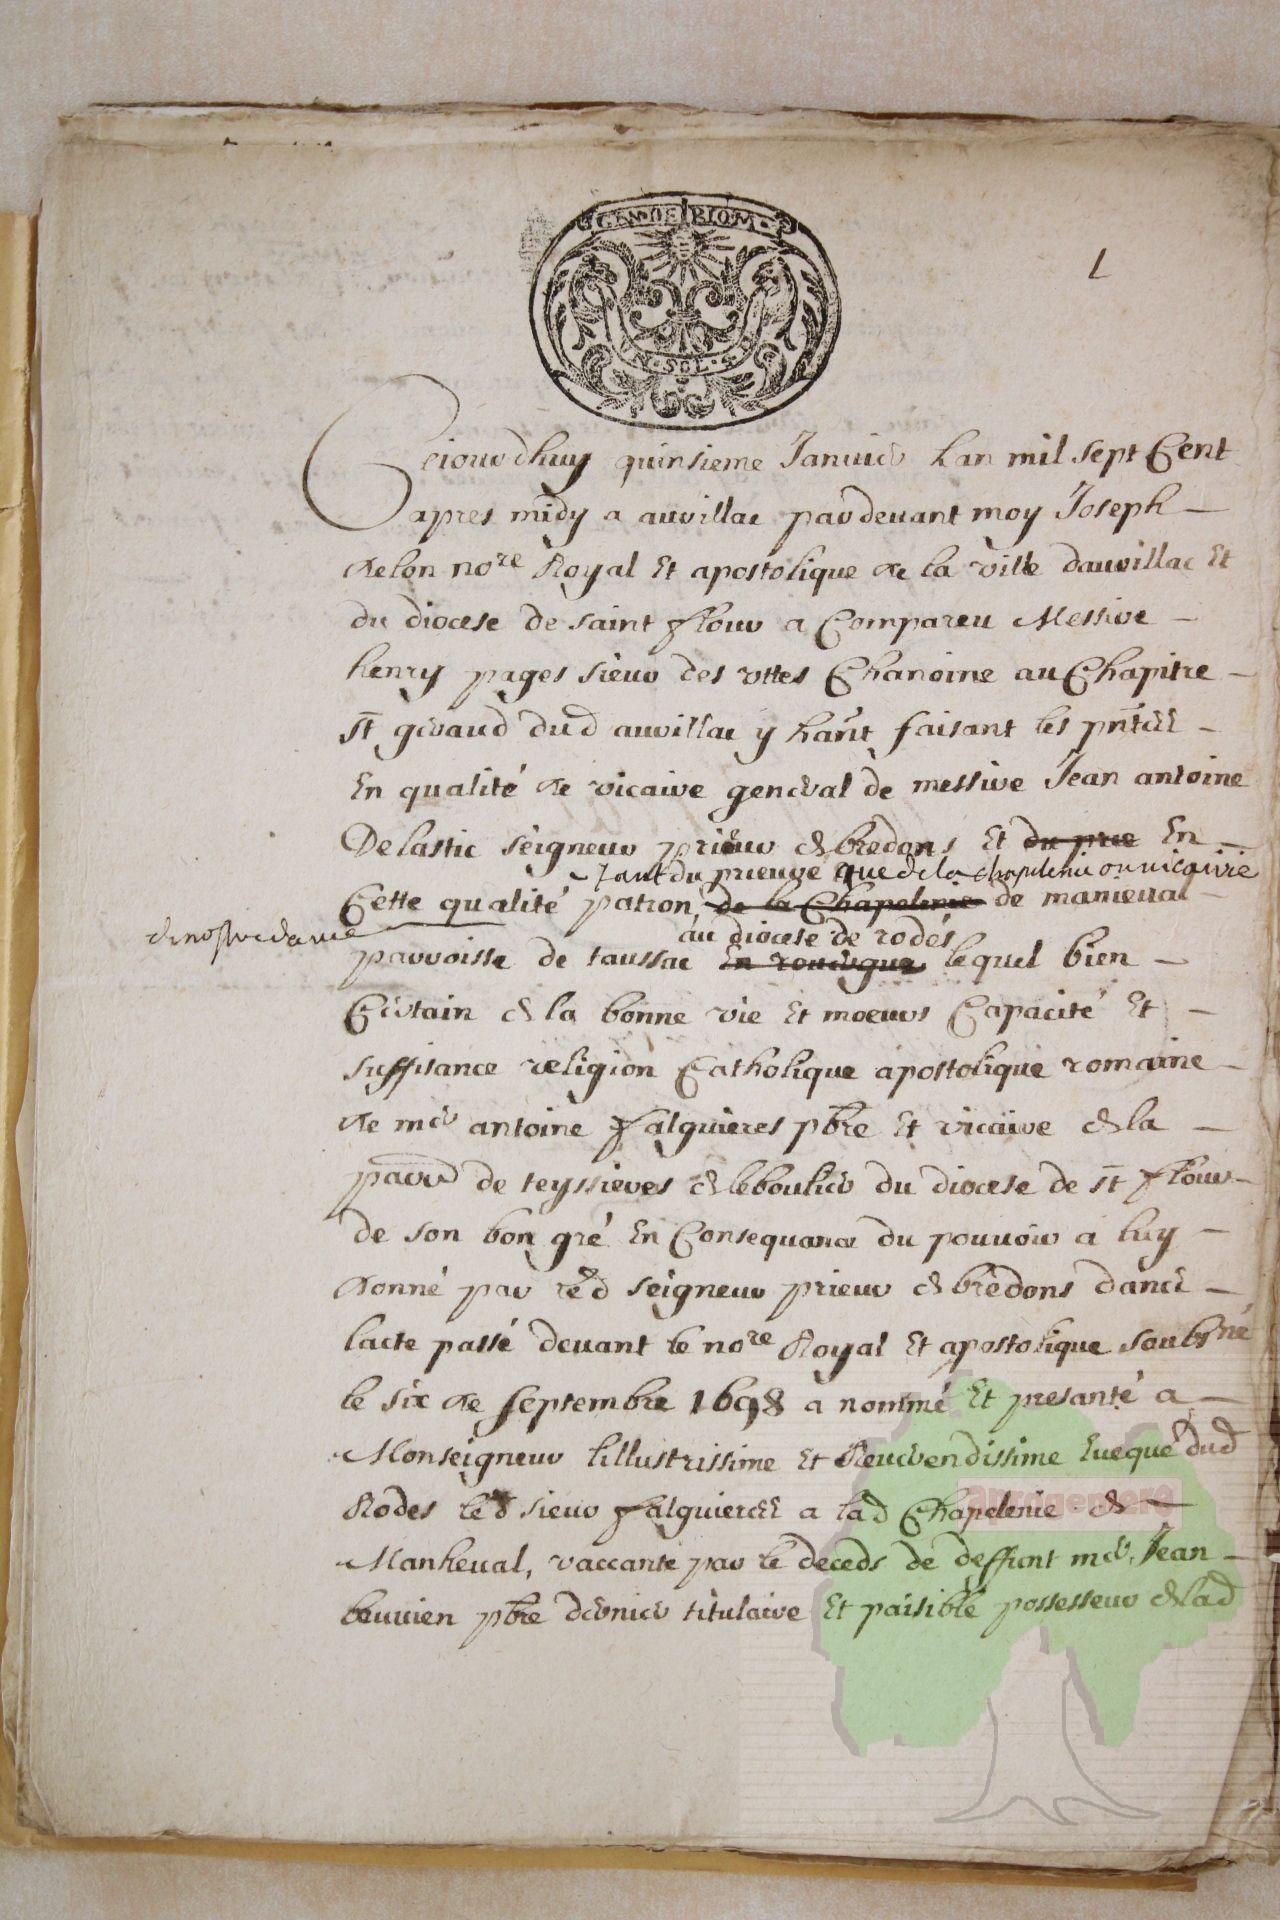 GEN·DE RIOM·
N·SOL·
1
Ceiourdhuy quinsieme Januier Lan mil sept Cent
apres midy a auvillac pardeuant moy Joseph
delon nore Royal Et apostolique de la ville dauvillac Et
du diocese de saint flour a Compareu Messire
henry pages sieur des vttes Chanoine au Chapitre
st geraud dud auvillac y hant faisant les pntes
En qualité de vicaire general de messire Jean antoine
Delastic seigneur prieur de bredons Et du prie En
tant du prieure que de la chapelenie ou vicairie
Cette qualité patron, de la Chapelenie de manieual
de nostre dame
au diocese de rodes
parroisse de taussac En rouergue lequel bien
Certain de la bonne vie Et moeurs Capacité Et
suffisance religion Catholique apostolique romaine
de mer antoine falguieres pbre Et vicaire de la
parr de teyssieres de leboulier du diocese de st flour
de son bon gré En Consequance du pouuoir a luy
donné par led seigneur prieur de bredons dans
lacte passé deuant le nore Royal Et apostolique soubsné
le six de septembre 1698 a nommé Et presanté a
Monseigneur lillustrissime Et Reuerendissime Eueque dud
Rodes led sieur falguieres a lad Chapelenie de
Manheval, vaccante par le deceds de deffunt mer Jean
pbre dernier titulaire Et paisible possesseur de lad
aprogemere